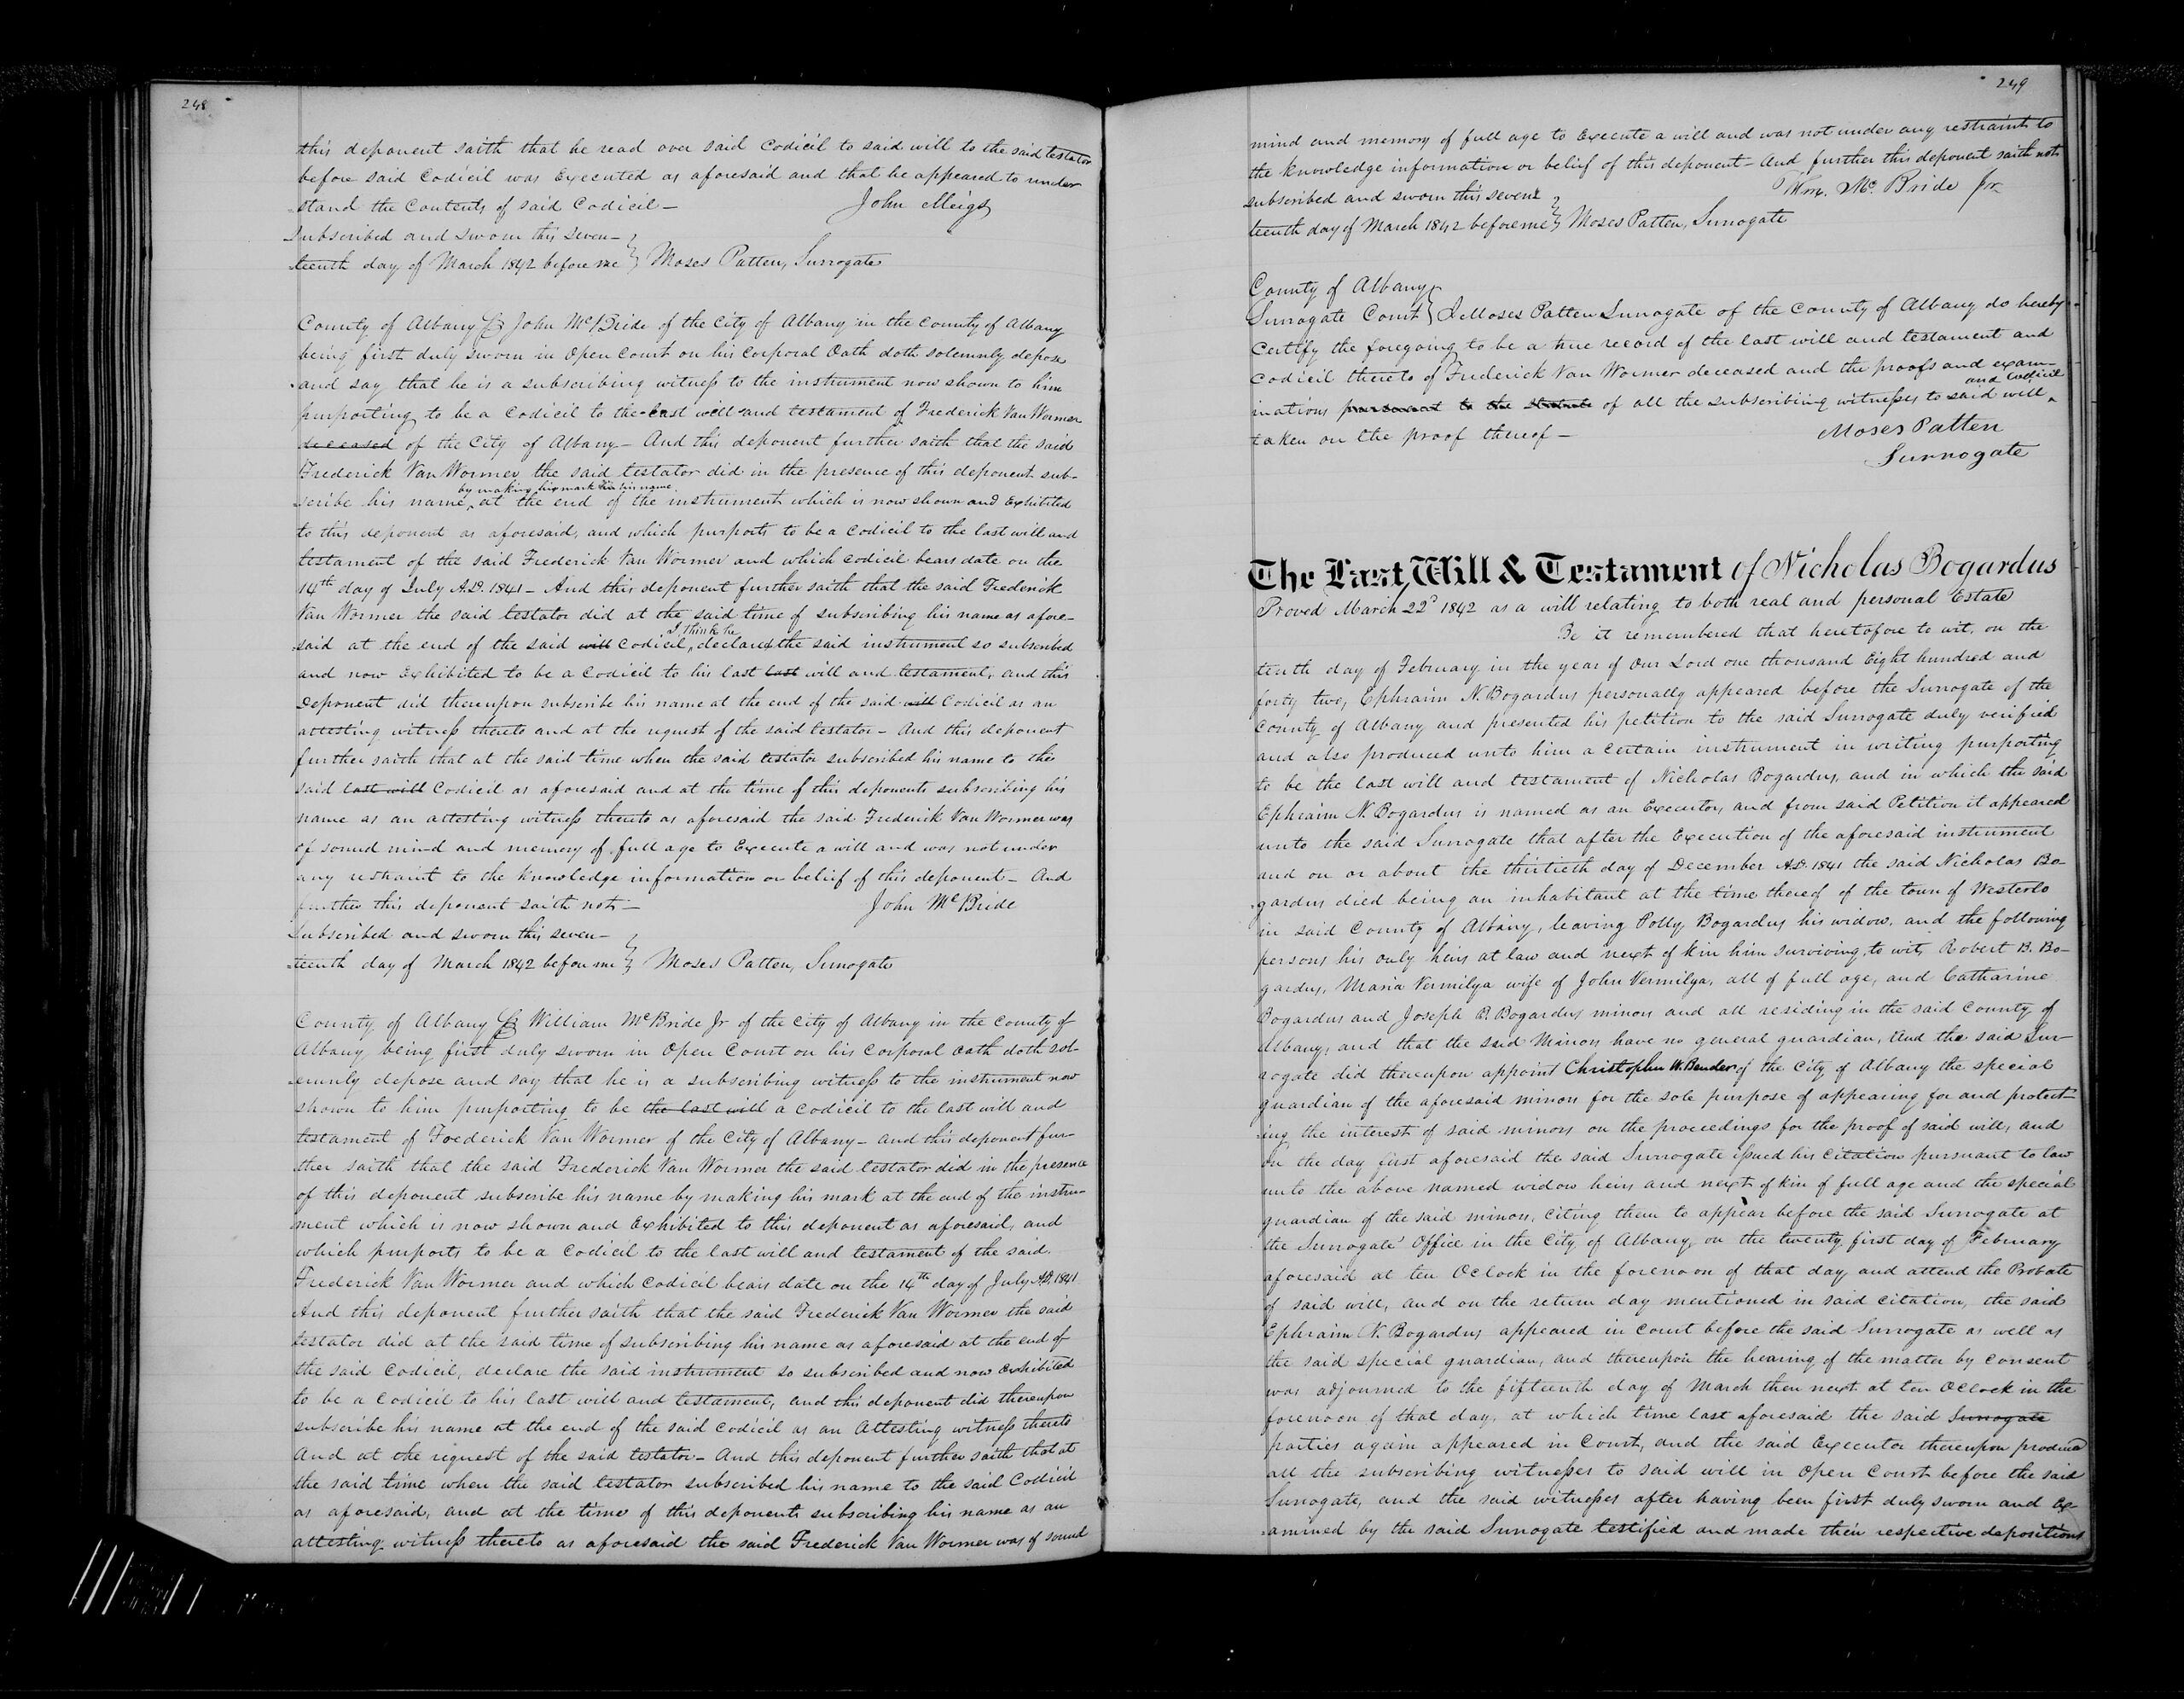 248
this deponent saith that he read over said Codicil to said will to the said testator
before said Codicil was Executed as aforesaid and that he appeared to under
stand the Contents of said Codicil — John Meigs
Subscribed and sworn this seven—
teenth day of March 1842 before me } Moses Patten, Surrogate
County of Albany ss John McBride of the City of Albany in the County of Albany
being first duly sworn in Open Court on his Corporal Oath doth solemnly depose
and say that he is a subscribing witness to the instrument now shown to him
purporting to be a Codicil to the last will and testament of Frederick Van Wormer
deceased of the City of Albany — And this deponent further saith that the said
Frederick Van Wormer the said testator did in the presence of this deponent sub-
by making his mark to his name
scribe his name, at the end of the instrument which is now shown and Exhibited
to this deponent as aforesaid, and which purports to be a Codicil to the last will and
testament of the said Frederick Van Wormer and which codicil bears date on the
14th day of July A.D. 1841 — And this deponent further saith that the said Frederick
Van Wormer the said testator did at the said time of subscribing his name as afore-
I think he
said at the end of the said will Codicil, declared the said instrument so subscribed
and now Exhibited to be a Codicil to his last last will and testament, and this
Deponent did thereupon subscribe his name at the end of the said will Codicil as an
attesting witness thereto and at the request of the said testator — And this deponent
further saith that at the said time when the said testator subscribed his name to the
said last will Codicil as aforesaid and at the time of this deponents subscribing his
name as an attesting witness thereto as aforesaid the said Frederick Van Wormer was
of sound mind and memory of full age to Execute a will and was not under
any restraint to the knowledge information or belief of this deponent — And
further this deponent saith not — John McBride
Subscribed and sworn this seven—
teenth day of March 1842 before me } Moses Patten, Surrogate
County of Albany ss William McBride Jr of the City of Albany in the County of
Albany being first duly sworn in Open Court on his Corporal oath doth sol-
emnly depose and say that he is a subscribing witness to the instrument now
shown to him purporting to be the last will a codicil to the last will and
testament of Frederick Van Wormer of the City of Albany — and this deponent fur-
ther saith that the said Frederick Van Wormer the said testator did in the presence
of this deponent subscribe his name by making his mark at the end of the instru-
ment which is now shown and Exhibited to this deponent as aforesaid, and
which purports to be a Codicil to the last will and testament of the said
Frederick Van Wormer and which Codicil bears date on the 14th day of July A.D. 1841
And this deponent further saith that the said Frederick Van Wormer the said
testator did at the said time of subscribing his name as aforesaid at the end of
the said Codicil, declare the said instrument so subscribed and now exhibited
to be a Codicil to his last will and testament, and this deponent did thereupon
subscribe his name at the end of the said Codicil as an Attesting witness thereto
And at the request of the said testator — And this deponent further saith that at
the said time when the said testator subscribed his name to the said Codicil
as aforesaid, and at the time of this deponents subscribing his name as an
attesting witness thereto as aforesaid the said Frederick Van Wormer was of sound
249
mind and memory of full age to Execute a will and was not under any restraint to
the knowledge information or belief of this deponent — And further this deponent saith not
Wm. Mc.Bride Jr
subscribed and sworn this seven
teenth day of March 1842 before me } Moses Patten, Surrogate
County of Albany
Surrogate Court } I Moses Patten Surrogate of the County of Albany do hereby
Certify the foregoing to be a true record of the last will and testament and
codicil thereto of Frederick Van Wormer deceased and the proofs and exam-
and codicil
inations pursuant to the statute of all the subscribing witnesses to said will
taken on the proof thereof — Moses Patten
Surrogate
The Last Will & Testament of Nicholas Bogardus
Proved March 22d 1842 as a will relating to both real and personal Estate
Be it remembered that heretofore to wit, on the
tenth day of February in the year of Our Lord one thousand Eight hundred and
forty two, Ephraim N. Bogardus personally appeared before the Surrogate of the
County of Albany and presented his petition to the said Surrogate duly verified
and also produced unto him a certain instrument in writing purporting
to be the last will and testament of Nicholas Bogardus, and in which the said
Ephraim N. Bogardus is named as an Executor, and from said Petition it appeared
unto the said Surrogate that after the Execution of the aforesaid instrument
and on or about the thirtieth day of December A.D. 1841 the said Nicholas Bo-
gardus died being an inhabitant at the time thereof of the town of Westerlo
in said County of Albany, leaving Polly Bogardus his widow, and the following
persons his only heirs at law and next of kin him surviving, to wit, Robert B. Bo-
gardus, Maria Vermilya wife of John Vermilya, all of full age, and Catharine
Bogardus and Joseph B. Bogardus minors and all residing in the said County of
Albany, and that the said Minors have no general guardian, And the said Sur-
rogate did thereupon appoint Christopher W. Bender of the City of Albany the special
guardian of the aforesaid minors for the sole purpose of appearing for and protect-
ing the interest of said minors on the proceedings for the proof of said will, and
on the day first aforesaid the said Surrogate issued his citation pursuant to law
unto the above named widow heirs and next of kin of full age and the special
guardian of the said minors, citing them to appear before the said Surrogate at
the Surrogate' Office in the City of Albany, on the twenty first day of February
aforesaid at ten Oclock in the forenoon of that day and attend the Probate
of said will, and on the return day mentioned in said citation, the said
Ephraim N. Bogardus appeared in court before the said Surrogate as well as
the said special guardian, and thereupon the hearing of the matter by consent
was adjourned to the fifteenth day of March then next at ten Oclock in the
forenoon of that day, at which time last aforesaid the said Surrogate
parties again appeared in Court, and the said Executor thereupon produced
all the subscribing witnesses to said will in Open Court before the said
Surrogate, and the said witnesses after having been first duly sworn and Ex-
amined by the said Surrogate testified and made their respective depositions